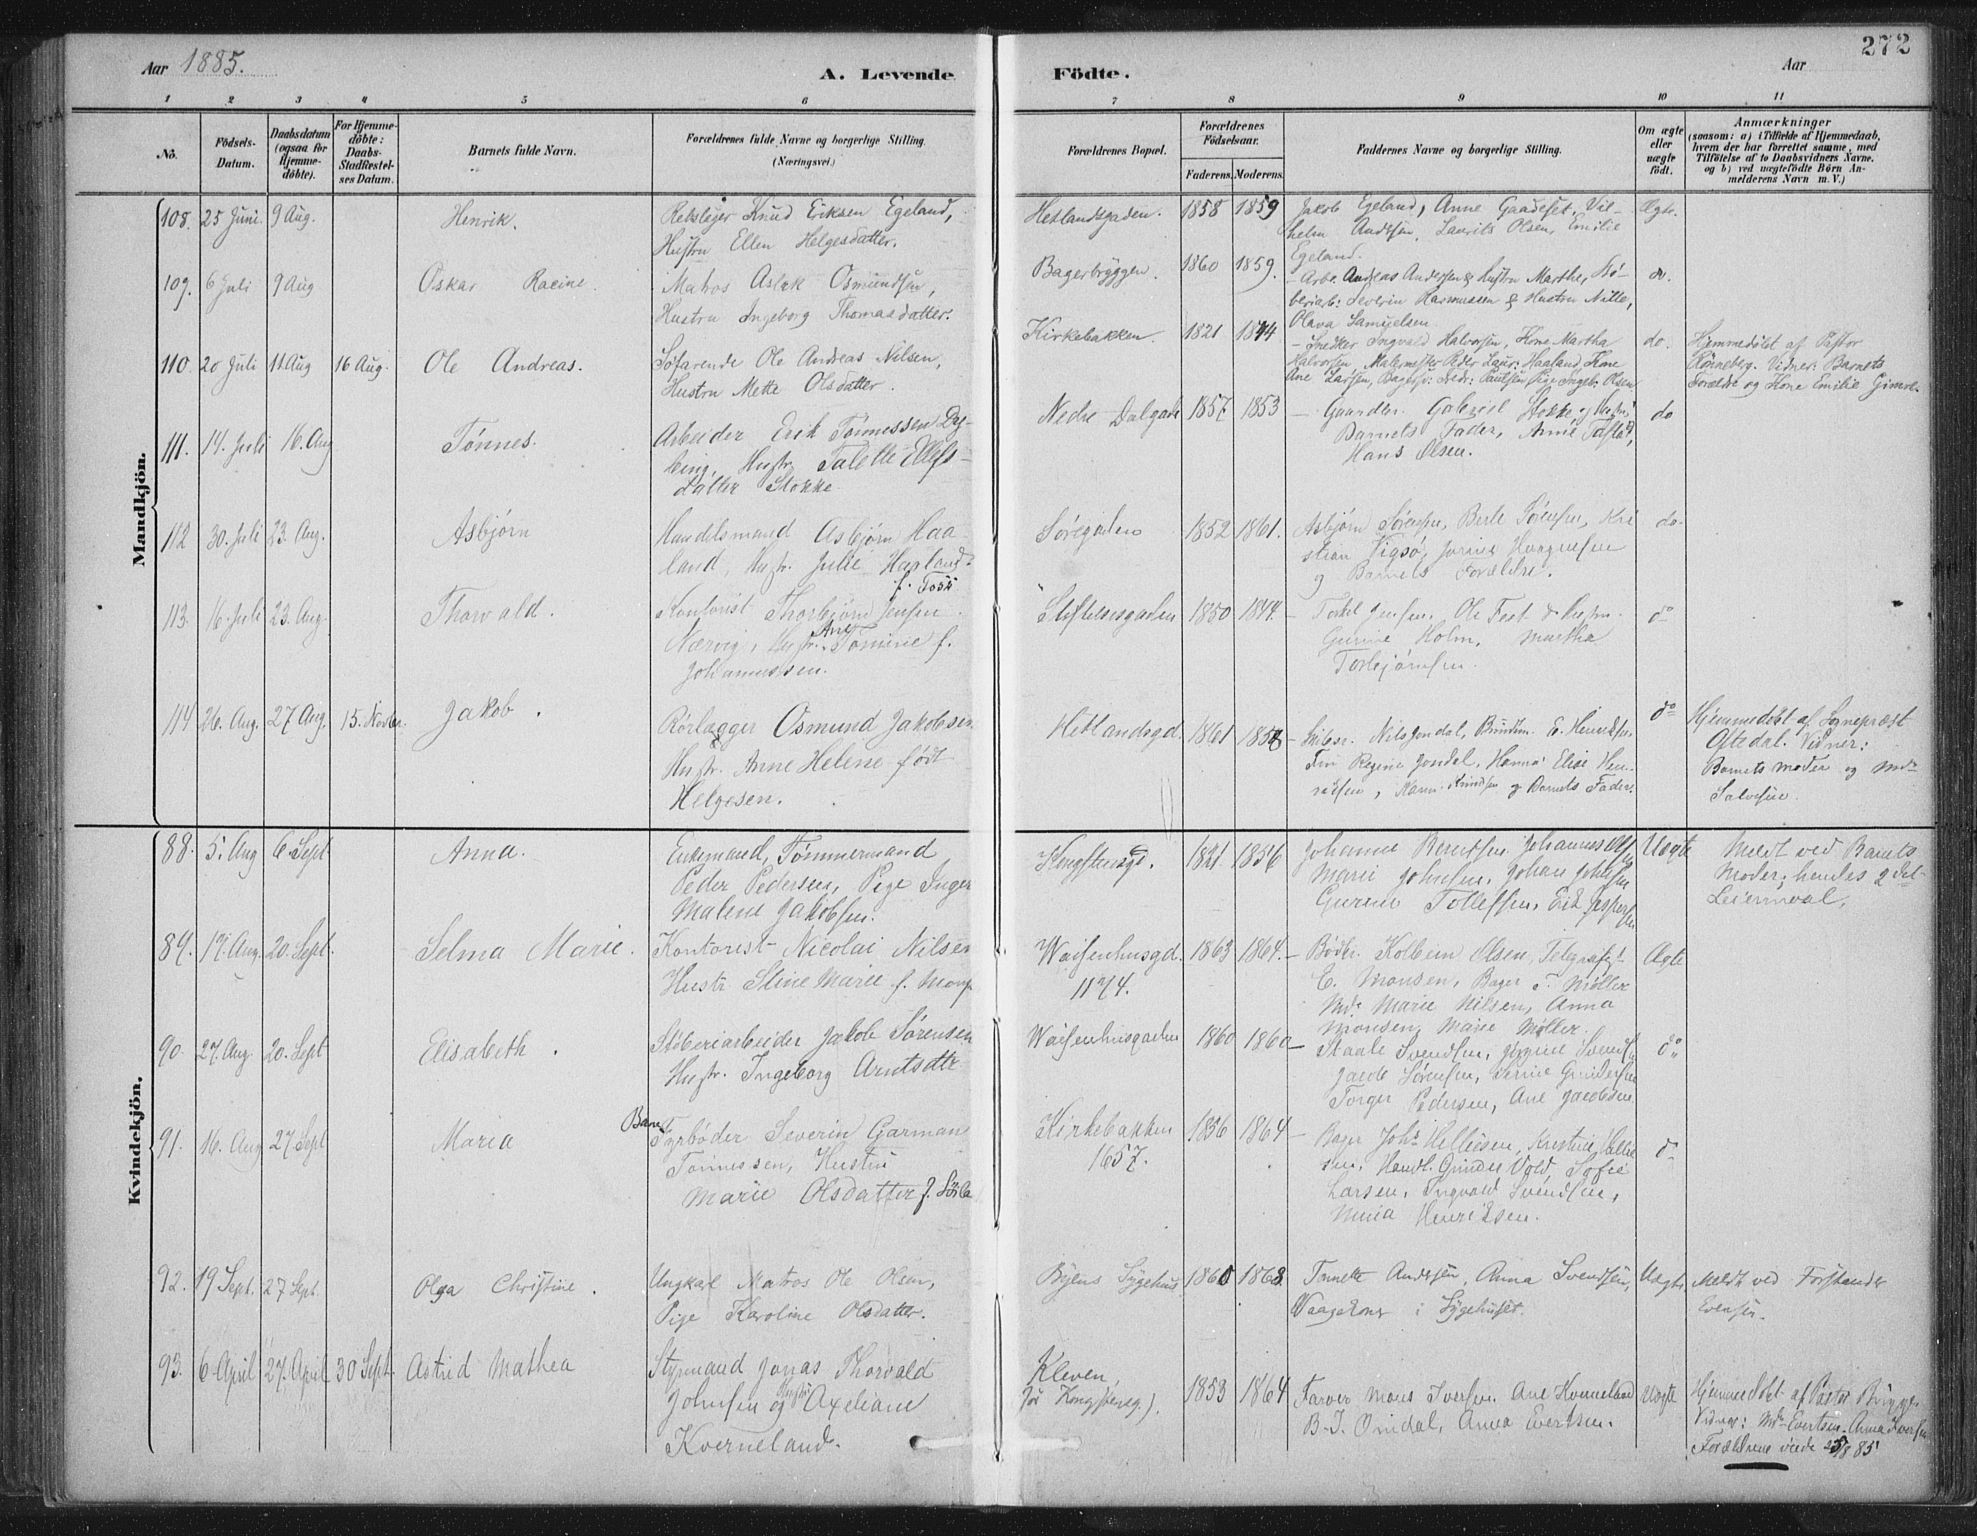 Aar 1885.
A. Levende Födte.
Aar
272
1 2 3 4 5 6 7 8 9 10 11
No.
Födsels-Datum.
Daabsdatum (ogsaa for Hjemmedöbte).
For Hjemmedöbte: Daabs-Stadfæstelses Datum.
Barnets fulde Navn.
Forældrenes fulde Navne og borgerlige Stilling. (Næringsvei.)
Forældrenes Bopæl.
Forældrenes Födselsaar.
Faderens. Moderens.
Faddernes Navne og borgerlige Stilling.
Om ægte eller uægte födt.
Anmærkninger
(saasom: a) i Tilfælde af Hjemmedaab, hvem der har forrettet samme, med Tilföielse af to Daabsvidners Navne. og b) ved uægtefödte Börn Anmelderens Navn m. V.)
Mandkjön.
108. 25 Juni 9 Aug. Henrik.
Rebslager Knud Eriksen Egeland,
Hustru Ellen Helgesdatter.
Hetlandsgaden. 1858 1859
Jakob Egeland, Anne Gaadeset, Vil-
helm Andersen, Laurits Olsen, Emilie
Egeland.
Ægte.
109. 6 Juli 9 Aug Oskar Racine.
Matros Aslak Osmundsen,
Hustru Ingeborg Thomasdatter.
Bagerbryggen. 1860 1859.
Arbe. Andreas Andersen & Hustru Marthe, Stö-
beriarb: Severin Rasmussen & Hustru Nille,
Olava Samuelsen
do.
110. 20 Juli 11 Aug 16 Aug. Ole Andreas.
Söfarende Ole Andreas Nilsen,
Hustru Mette Olsdatter.
Kirkebakken. 1821 1844
Snedker Ingvald Halvorsen, Kone Martha
Halvorsen, Malermester Peder Laur: Haaland, Kone
Ane Larsen, Bagersv: Fredr: Paulsen Pige Ingeb: Olsen
do.
Hjemmedöbt af Pastor
Rönneberg. Vidner: Barnets
Forældre og Kone Emilie
111. 14. Juli 16. Aug Tönnes.
Arbeider Erik Tönnessen
Hustr Talette Ellefs-
datter Stokke
Nedre Dalgade 1857 1853
Gaardbr. Gabriel Stokke og Hustru
Barnets Fader, Annie
Hans Olsen.
do
112 30. Juli 23. Aug. Asbjörn
Handelsmand Asbjörn Haa-
land, Hustr. Julie Haaland
f. Foss
Söregaden 1852 1861.
Asbjörn Sörensen, Berle Sörensen, Kri
stian Vigsö,
og Barnets Forældre.
do.
113. 16. Juli 23. Aug. Thorvald.
Kontorist Thorbjörn Jensen
Nærvig, Hustr. Ane Tomine f.
Johannessen.
Stiftelsesgaden 1850 1844.
Torkel Jensen, Ole Fest & Hustru
Gurine Holm, Martha
Torbjörnsen.
do
114 26. Aug. 27 Aug. 15. Novbr. Jakob.
Rörlægger Osmund Jakobsen
Hustr. Anne Helene födt
Helgesen.
Hetlandsgd. 1861
Nils Jondal, E. Henriksen
Regine Jondal, Hanna Elise Hen-
riksen, og Barnets Fader.
do
Hjemmedöbt af Sognepræst
Oftedal. Vidner:
Barnets Moder og
Salvesen.
Kvindekjön.
88. 5. Aug 6. Sept Anna.
Enkemand, Tömmermand
Peder Pedersen, Pige Inger
Malene Jakobsen.
Kongstensgd. 1821 1856
Johanne Berntsen Johannes Olsen
Marie Johnsen, Johan Johnsen
Gurine Tollefsen, Erik Jespersen
Uægte
Meldt ved Barnets
Moder; hendes 2det
Leiermaal.
89. 17. Aug. 20. Sept. Selma Marie.
Kontorist Nicolai Nilsen
Hustr Stine Marie f.
Waisenhusgd. 1863 1864.
1174.
Bödker Kolbein Olsen, Telegrafist
E. Monsen, Bager T. Möller
Marie Nilsen, Anna
Monsen, Marie Möller.
Ægte
90. 27. Aug. 20. Sept Elisabeth.
Stöberiarbeider Jakob Sörensen
Hustr. Ingeborg Arntsdtr
Waisenhusgaden 1860 1860
Staale Svendsen, Svendsen
Jacob Sörensen, Serine Gundersen
Torger Pedersen, Ane Jacobsen
do
91. 16. Aug 27 Sept Maria
Bane Fyrböder Severin Garman
Tönnessen, Hustru
Marie Olsdatter f.
Kirkebakken 1856 1864
1657.
Bager Johs Helliesen, Kristine Hellie
sen, Handl. Gunder Vold, Sofie
Larsen, Ingvald Svendsen,
Mina Henriksen.
do
92. 19 Sept. 27 Sept. Olga Christine.
Ungkarl Matros Ole Olsen,
Pige Karoline Olsdatter.
Byens Sygehus
Tonette Andersen, Anna Svendsen,
Vaagekone i Sygehuset.
Uægte
Meldt ved Forstander
Evensen.
93. 6 April 27. April 30 Sept. Astrid Mathea
Styrmand Jonas Thorvald
Johnsen og Hustru Axeliane
Kverneland.
Kleven,
(för Kongstensg.). 1853 1864
Farver Mons Iversen. Ane Kverneland
B. T. Omdal, Anna Evertsen.
Uægte
Hjemmedöbt af Pastor Brügger
Vidner: Md. Evertsen, Anna Iversen
Forældrene viede 25/8 85